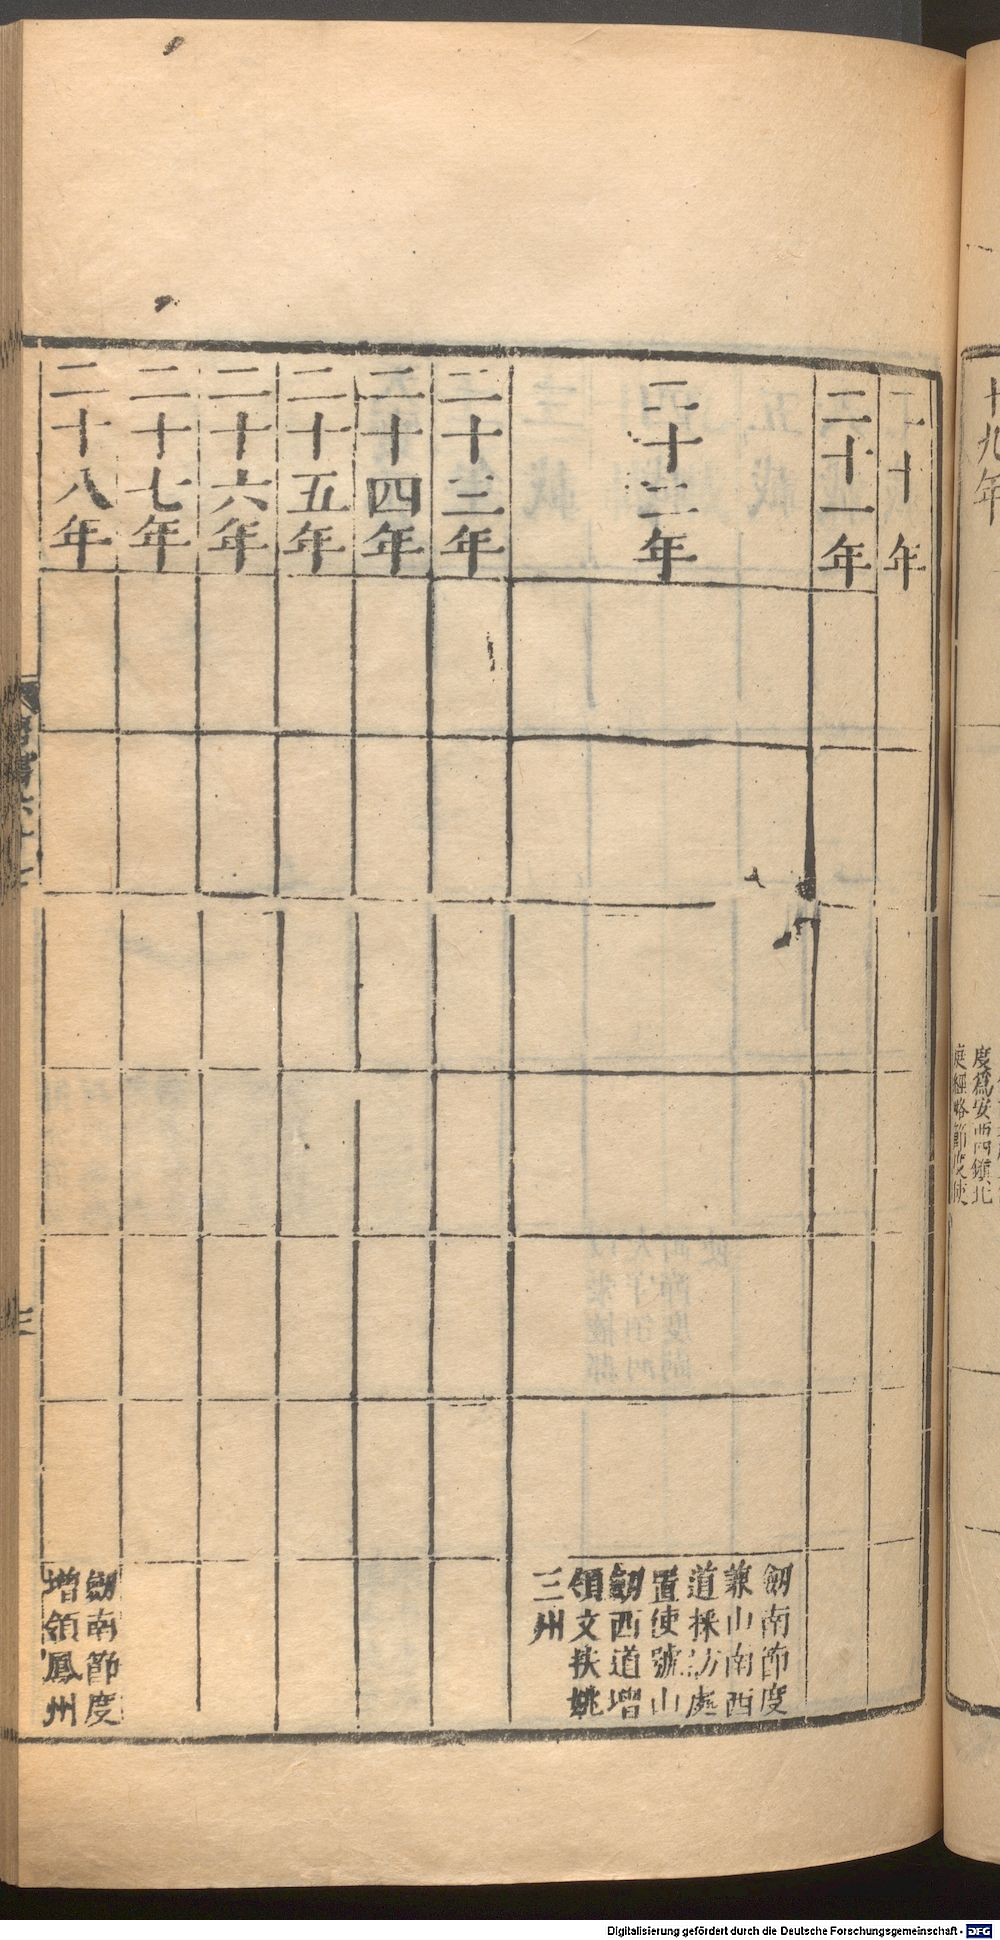 十九年
度爲安西四鎮北
庭經略節度使
二十年
二十一年
二十二年
劒南節度
兼山南西
道採訪處
置使號山
劒西道增
領文扶姚
三州
二十三年
二十四年
二十五年
二十六年
二十七年
二十八年
劒南節度
增領鳳州
三
Digitalisierung gefördert durch die Deutsche Forschungsgemeinschaft - DFG